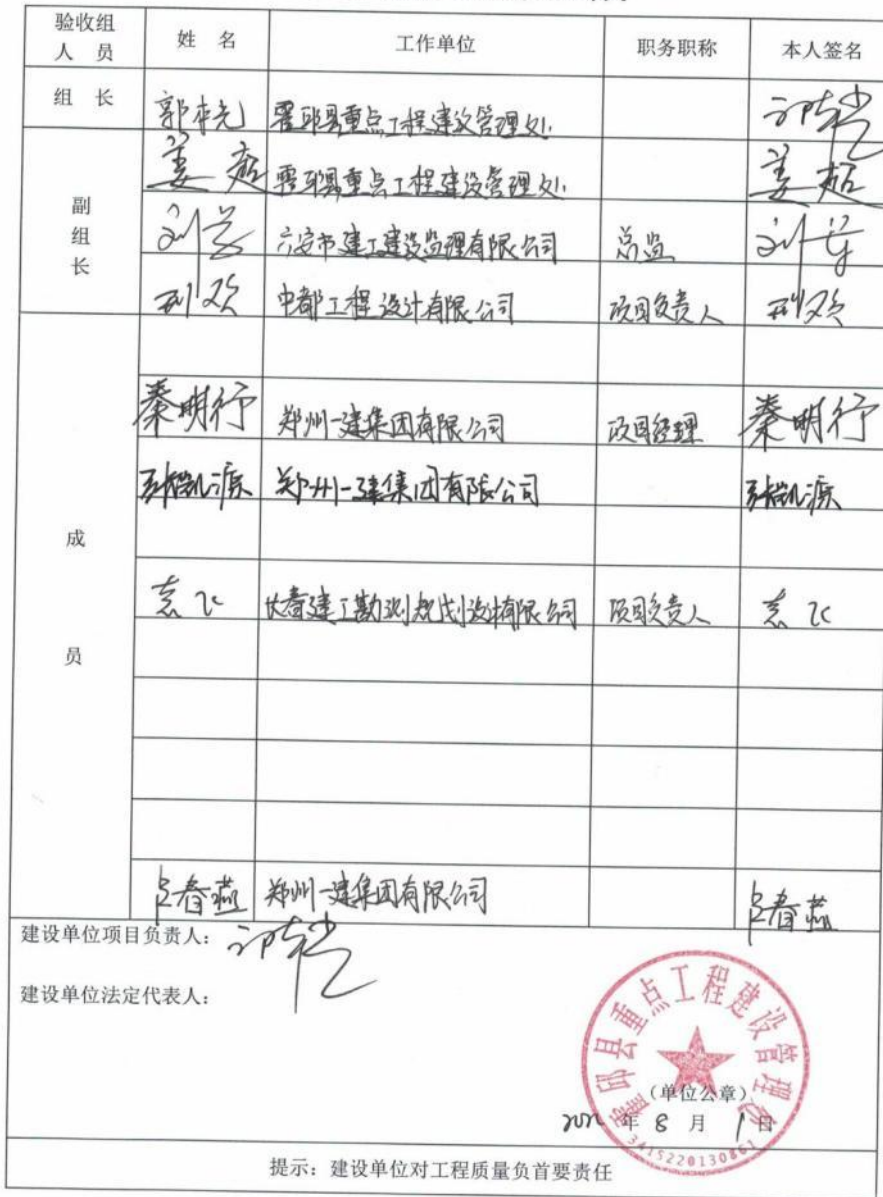 验收组
人 员
姓 名
工作单位
职务职称
本人签名
组 长
郭本先 霍邱县重点工程建设管理处
副组长
姜超 霍邱县重点工程建设管理处 姜超
六安市建工建设监理有限公司 总监
邢欢 中都工程设计有限公司 项目负责人 邢欢
成员
秦明行 郑州一建集团有限公司 项目经理 秦明行
郑州一建集团有限公司
长春建工勘测规划设计有限公司 项目负责人
吕春燕 郑州一建集团有限公司 吕春燕
建设单位项目负责人:
建设单位法定代表人:
霍邱县重点工程建设管理处
(单位公章)
2022 年 8 月 1 日
提示: 建设单位对工程质量负首要责任